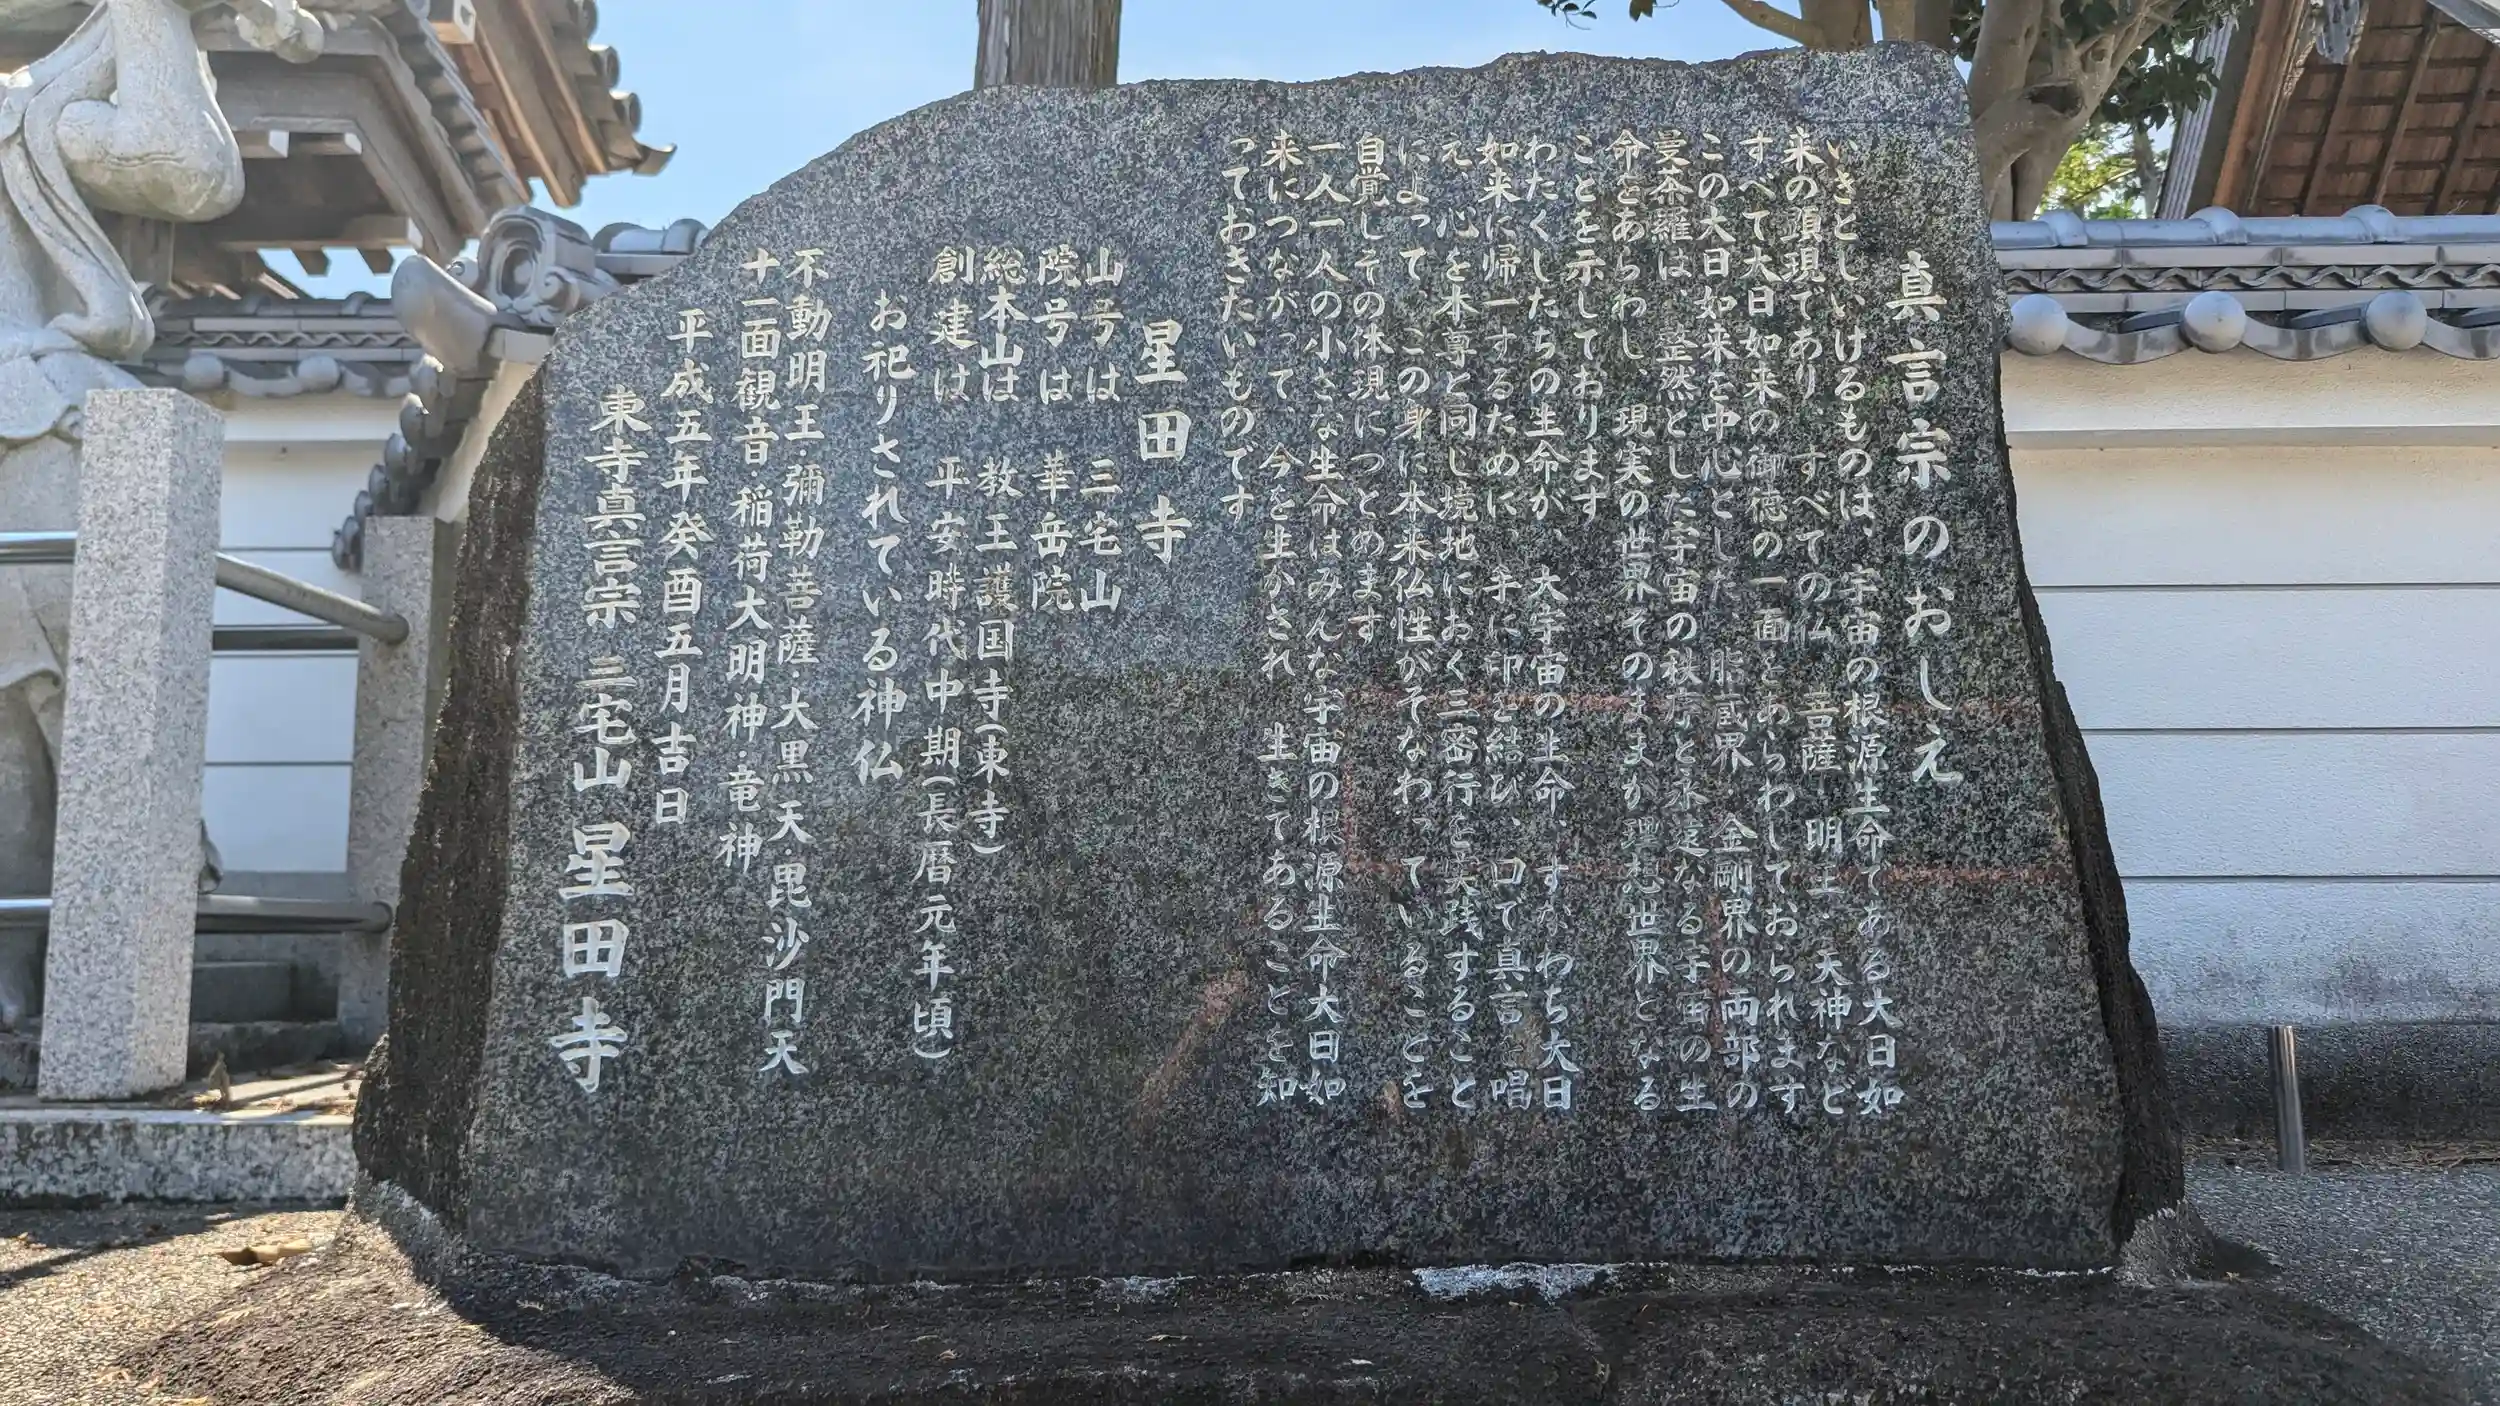 真言宗のおしえ
いきとしいけるものは、宇宙の根源生命である大日如
来の顕現であり、すべての仏 菩薩 明王・天神など
すべて大日如来の御徳の一面をあらわしておられます
この大日如来を中心とした 胎蔵界・金剛界の両部の
曼荼羅は、整然とした宇宙の秩序と永遠なる宇宙の生
命とをあらわし、現実の世界そのままが理想世界となる
ことを示しております
わたくしたちの生命が、大宇宙の生命、すなわち大日
如来に帰一するために、手に印を結び、口で真言を唱
え、心を本尊と同じ境地におく三密行を実践すること
によって、この身に本来仏性がそなわっていることを
自覚しその体現につとめます
一人一人の小さな生命はみんな宇宙の根源生命大日如
来につながって、今を生かされ 生きてあることを知
っておきたいものです
星田寺
山号は 三宅山
院号は 華岳院
総本山は 教王護国寺(東寺)
創建は 平安時代中期(長暦元年頃)
お祀りされている神仏
不動明王・彌勒菩薩・大黒天・毘沙門天
十一面観音・稲荷大明神・竜神
平成五年癸酉五月吉日
東寺真言宗 三宅山 星田寺